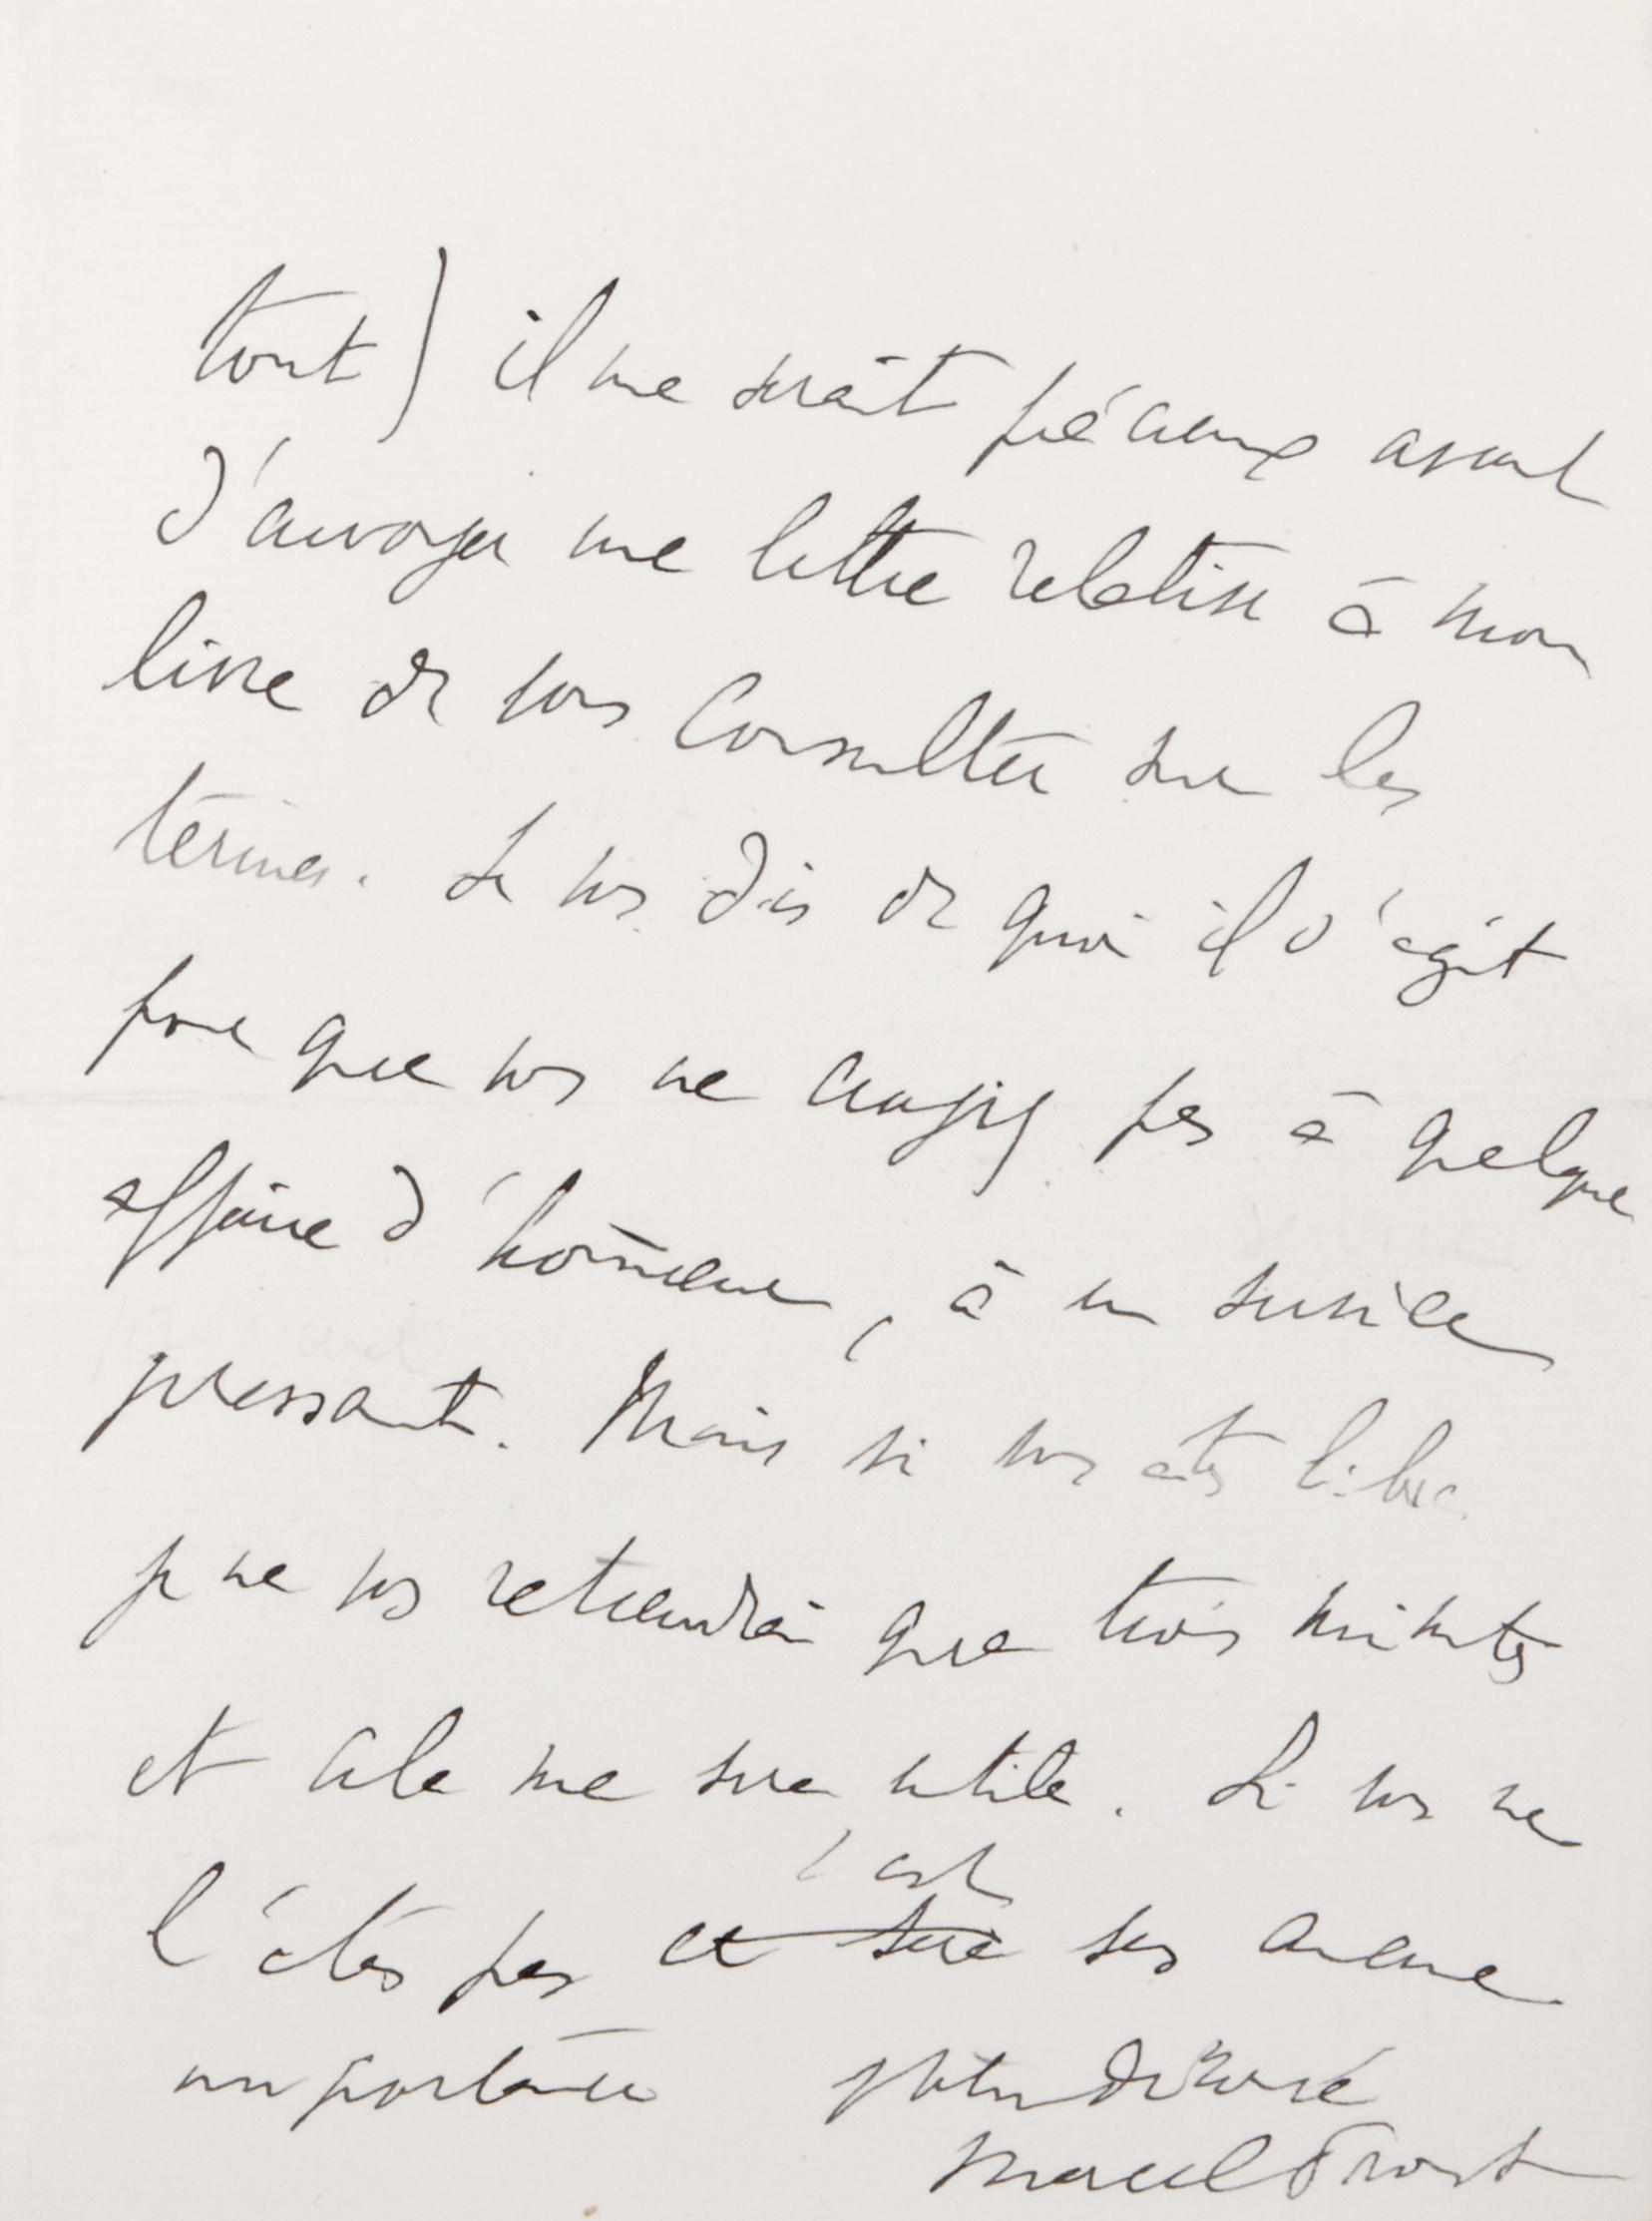 tout) il me serait précieux avant
d'envoyer une lettre relative à mon
livre de vous consulter sur les
termes. Je vous dis de quoi il s'agit
pour que vous ne croyiez pas à quelque
affaire d'honneur, à un service
pressant. Mais si vous êtes libre
je ne vous retiendrai que trois minutes
et cela me sera utile. Si vous ne
c'est
l'êtes pas ce sera sans aucune
importance Votre dévoué
Marcel Proust